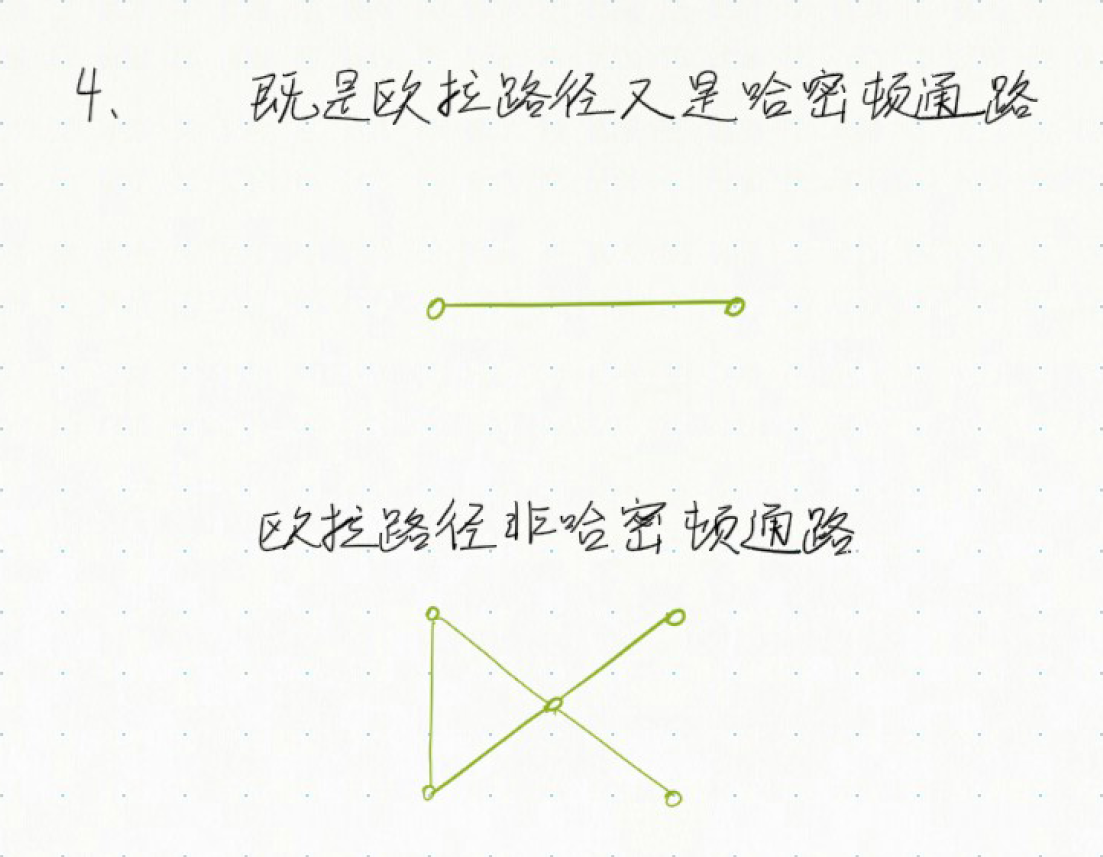 4、 既是欧拉路径又是哈密顿通路
欧拉路径非哈密顿通路